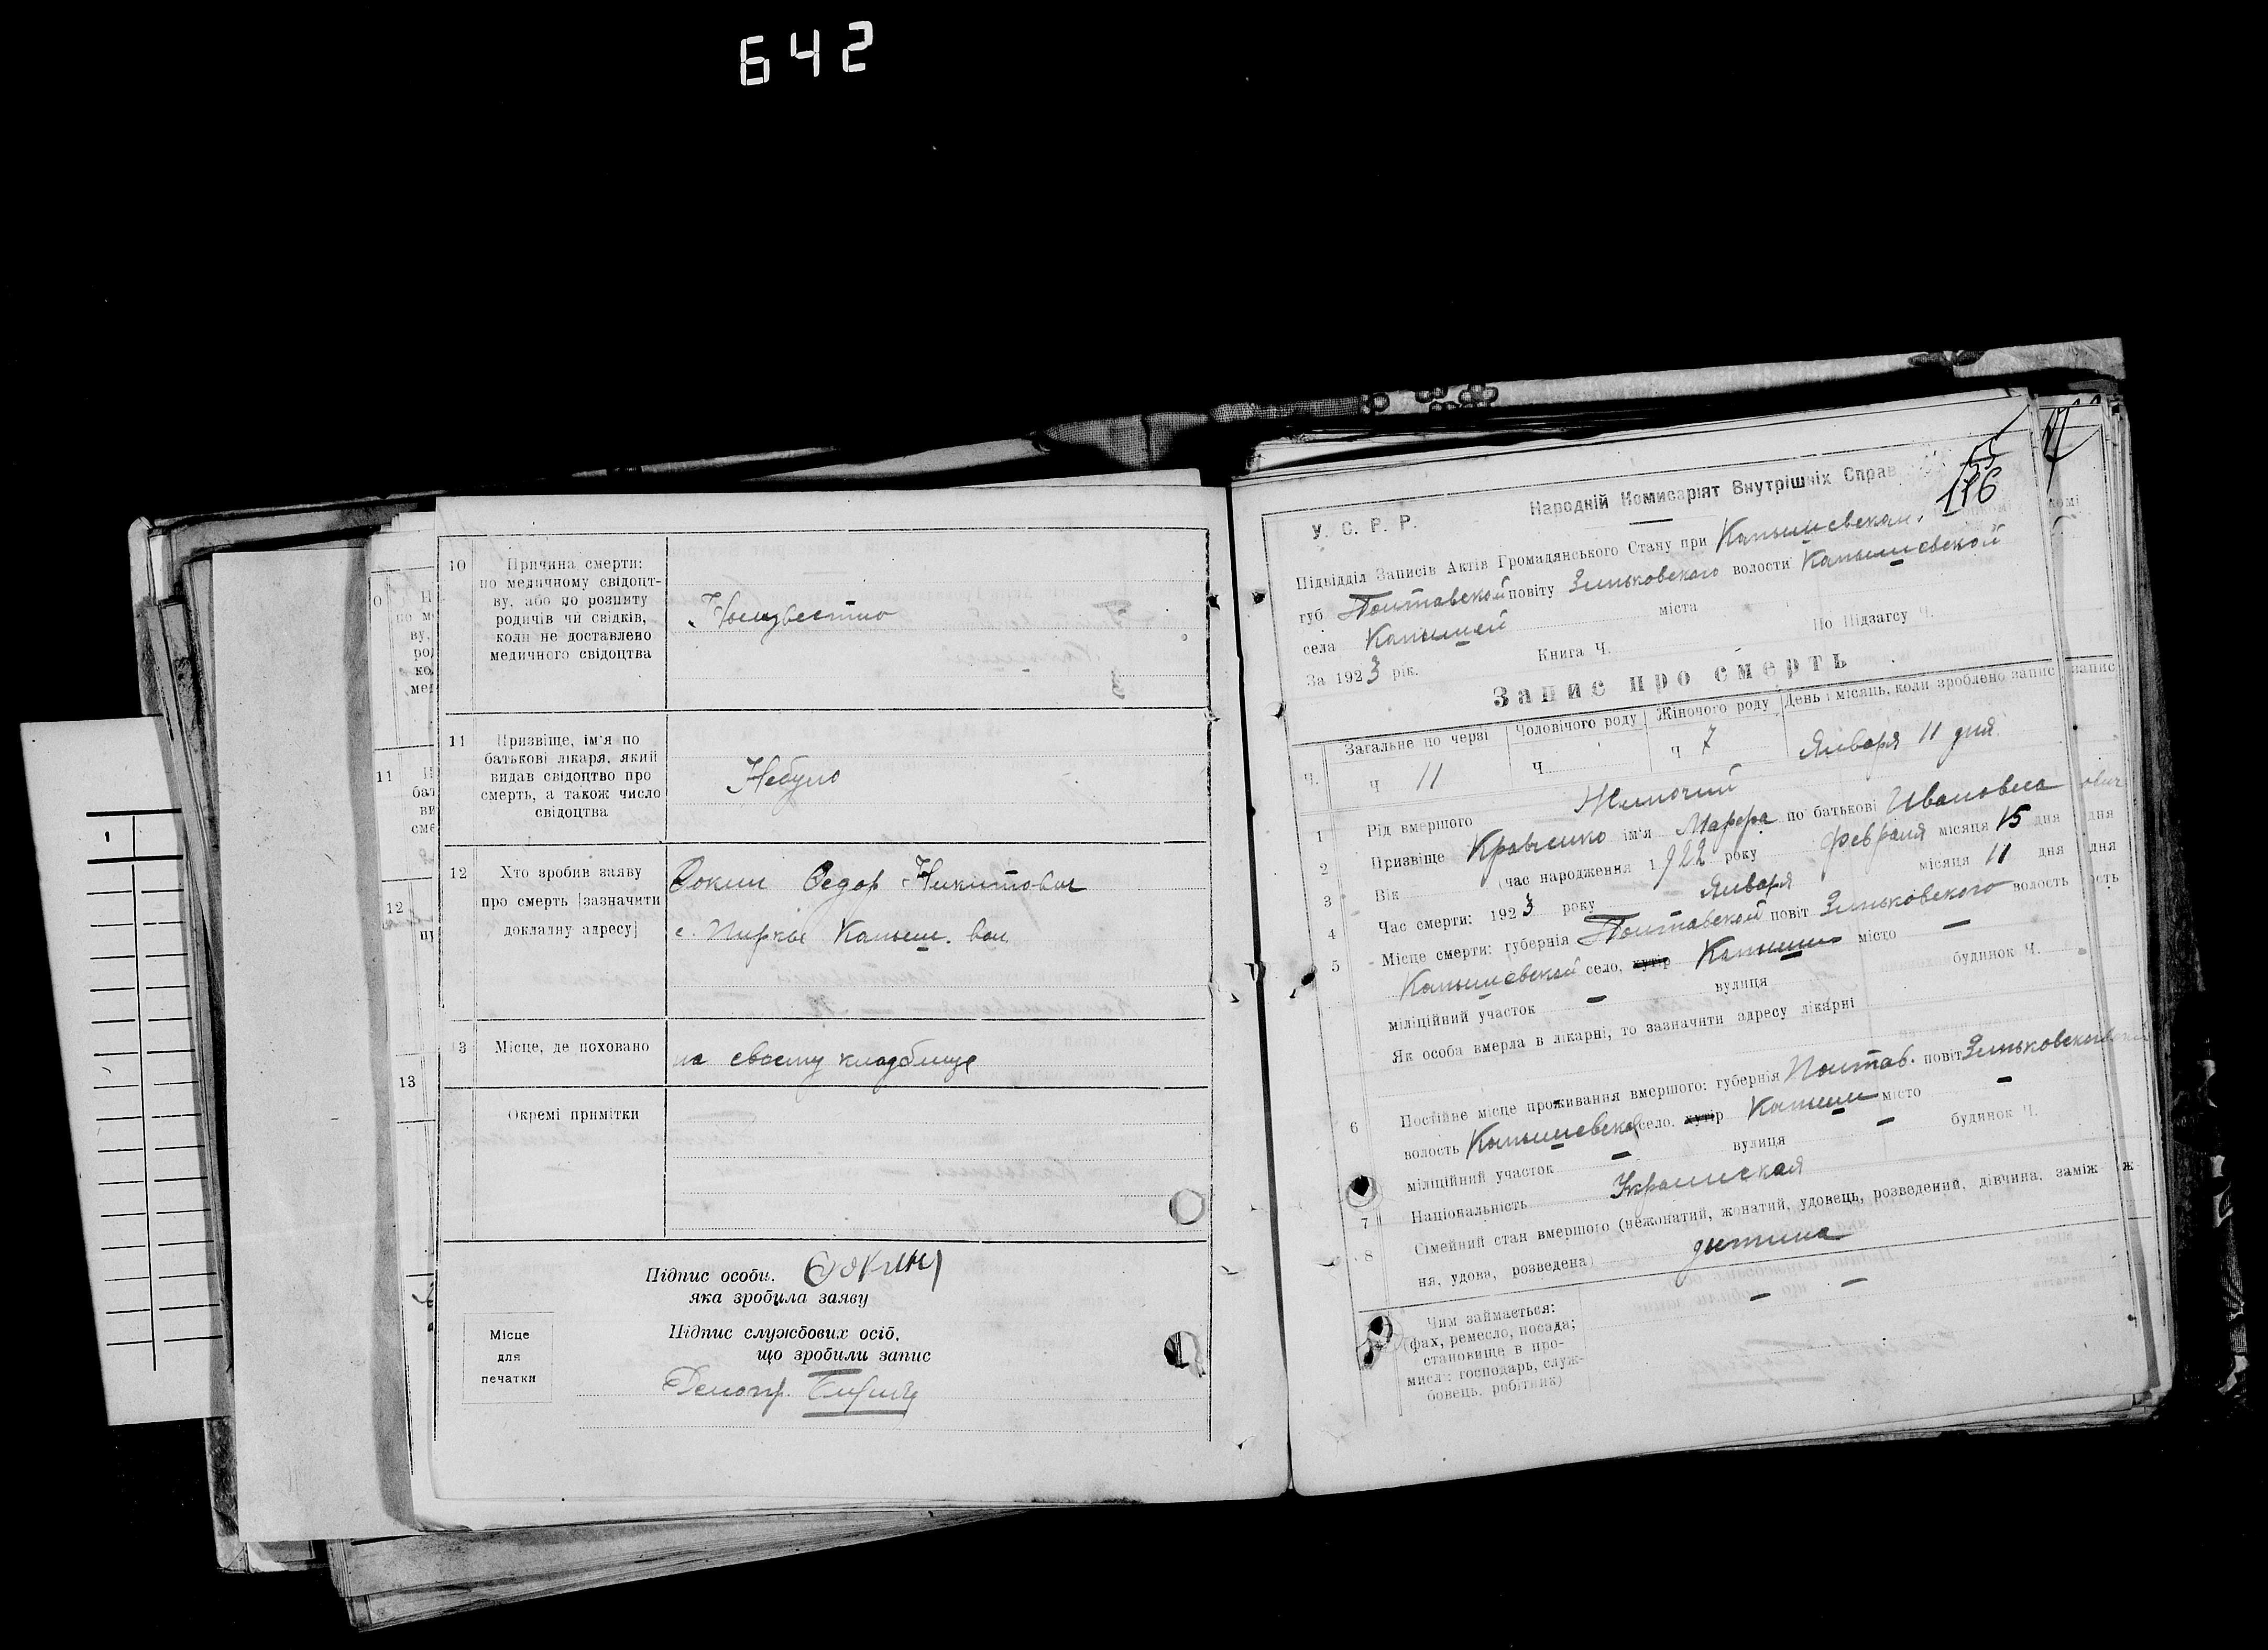 642
10 Причина смерти:
по медичному свідоцт-
ву, або по розпиту
родичів чи свідків,
коли не доставлено
медичного свідоцтва
Неизвестно
11 Призвіще, ім'я по
батькові лікаря, який
видав свідоцтво про
смерть, а також число
свідоцтва
Небуло
12 Хто зробив заяву
про смерть [зазначити
докладну адресу]
Федор Никитович
с. Пирки Камыш. вол
13 Місце, де поховано
на своему кладбище
Окремі примітки
Підпис особи.
яка зробила заяву
Підпис службових осіб.
що зробили запис
Місце
для
печатки
Делопр.
116
У. С. Р. Р. Народній Комисаріят Внутрішніх Справ
Підвідділ Записів Актів Громадянського Стану при Камышевском
губ Полтавской повіту Зиньковского волости Камышевской
села Камышей міста
За 1923 рік. Книга Ч. По Підзагсу Ч.
Запис про смерть
Ч. Загальне по черзі Чоловічого роду Жіночого роду День і місяць, коли зроблено запис
ч 11 Ч ч 7 Января 11 дня
1 Рід вмершого Жиночий
2 Призвіще Кравченко ім'я Марфа по батькові Ивановна
3 Вік (час народження 1922 року февраля місяця 15 дня
4 Час смерти: 1923 року Января місяця 11 дня
5 Місце смерти: губернія Полтавской повіт Зиньковского волость
Камышевской село, хутір Камыши місто —
міліційний участок — вулиця будинок Ч.
Як особа вмерла в лікарні, то зазначити адресу лікарні
6 Постійне місце проживання вмершого: губернія Полтав. повіт Зиньковского
волость Камышевской село, хутір Камыши місто —
міліційний участок — вулиця — будинок Ч.
7 Національність Украинская
8 Сімейний стан вмершого (нежонатий, жонатий, удовець, розведений, дівчина, заміж-
ня, удова, розведена) дытына
Чим займається:
фах, ремесло, посада;
становище в про-
мислі: господарь, служ-
бовець, робітник)
— —